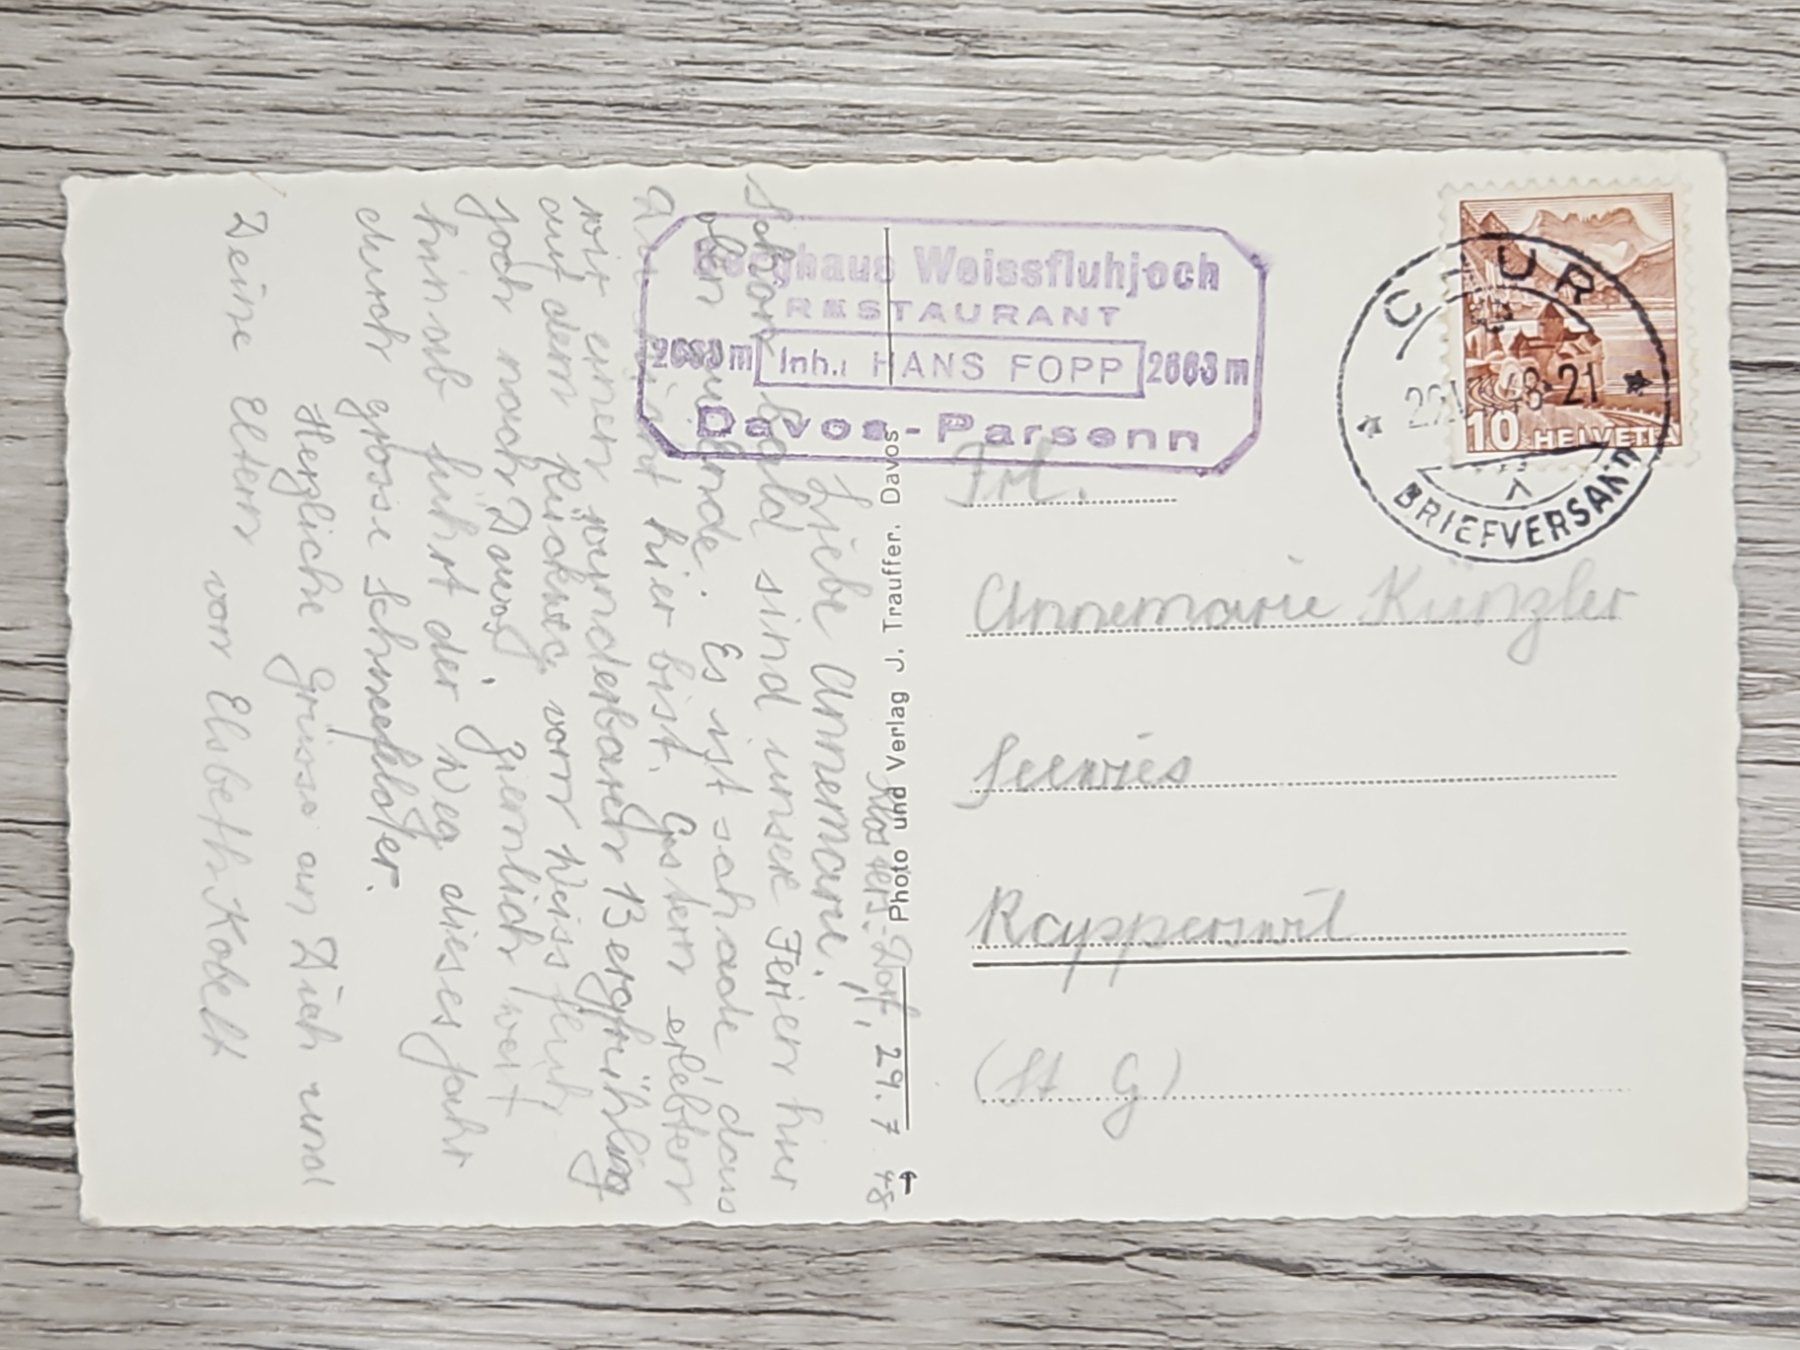 Klosters-Dorf, 29. 7. 48
Liebe Annemarie!
Schon bald sind unsere Ferien hier
oben zu Ende. Es ist schade dass
Du nicht hier bist. Gestern erlebten
wir einen wunderbaren Bergfrühling
auf dem Rückweg vom Weissfluh-
joch nach Davos. Ziemlich weit
hinab führt der Weg dieses Jahr
durch grosse Schneefelder.
Herzliche Grüsse an Dich und
Deine Eltern von Elsbeth Kobelt
Berghaus Weissfluhjoch
RESTAURANT
2663 m Inh.: HANS FOPP 2663 m
Davos-Parsenn
Photo und Verlag J. Trauffer. Davos
CHUR
48-21
BRIEFVERSAND
10 HELVETIA
Frl.
Annemarie Künzler
Seewies
Rapperswil
(St G)